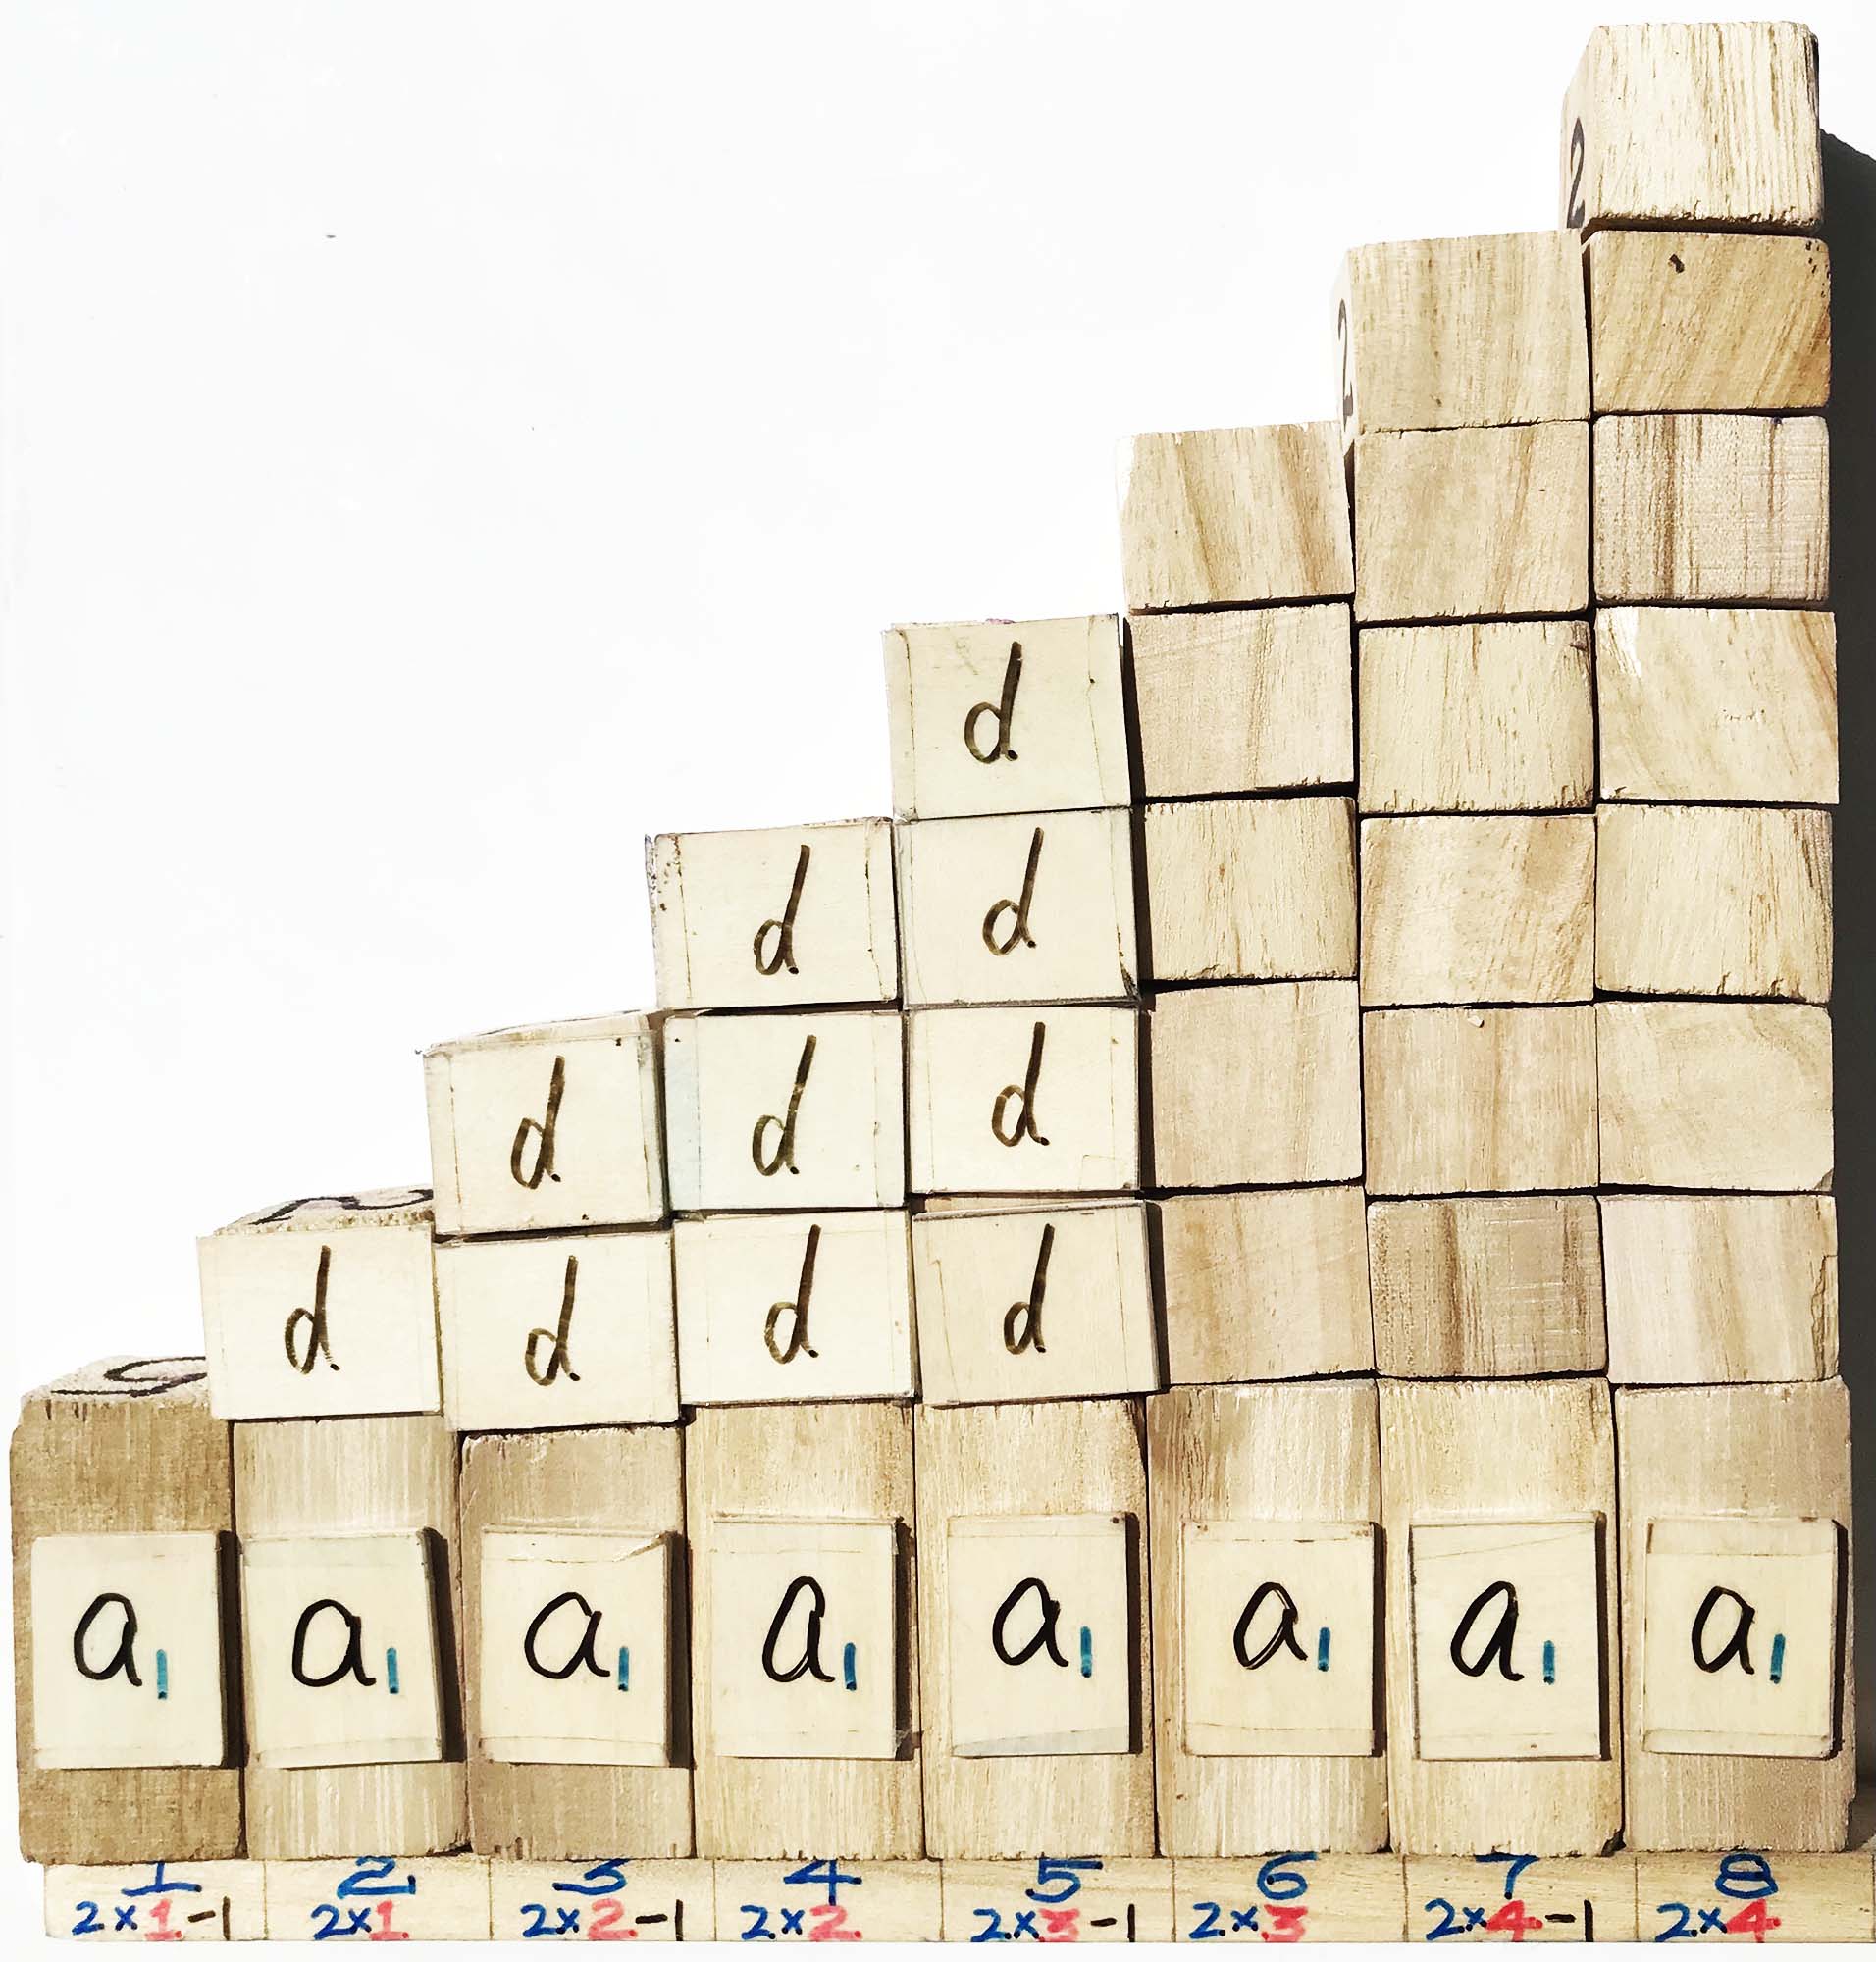 2
2
d
d d
d d d
d d d d
a₁ a₁ a₁ a₁ a₁ a₁ a₁ a₁
1 2 3 4 5 6 7 8
2×1-1 2×1 2×2-1 2×2 2×3-1 2×3 2×4-1 2×4